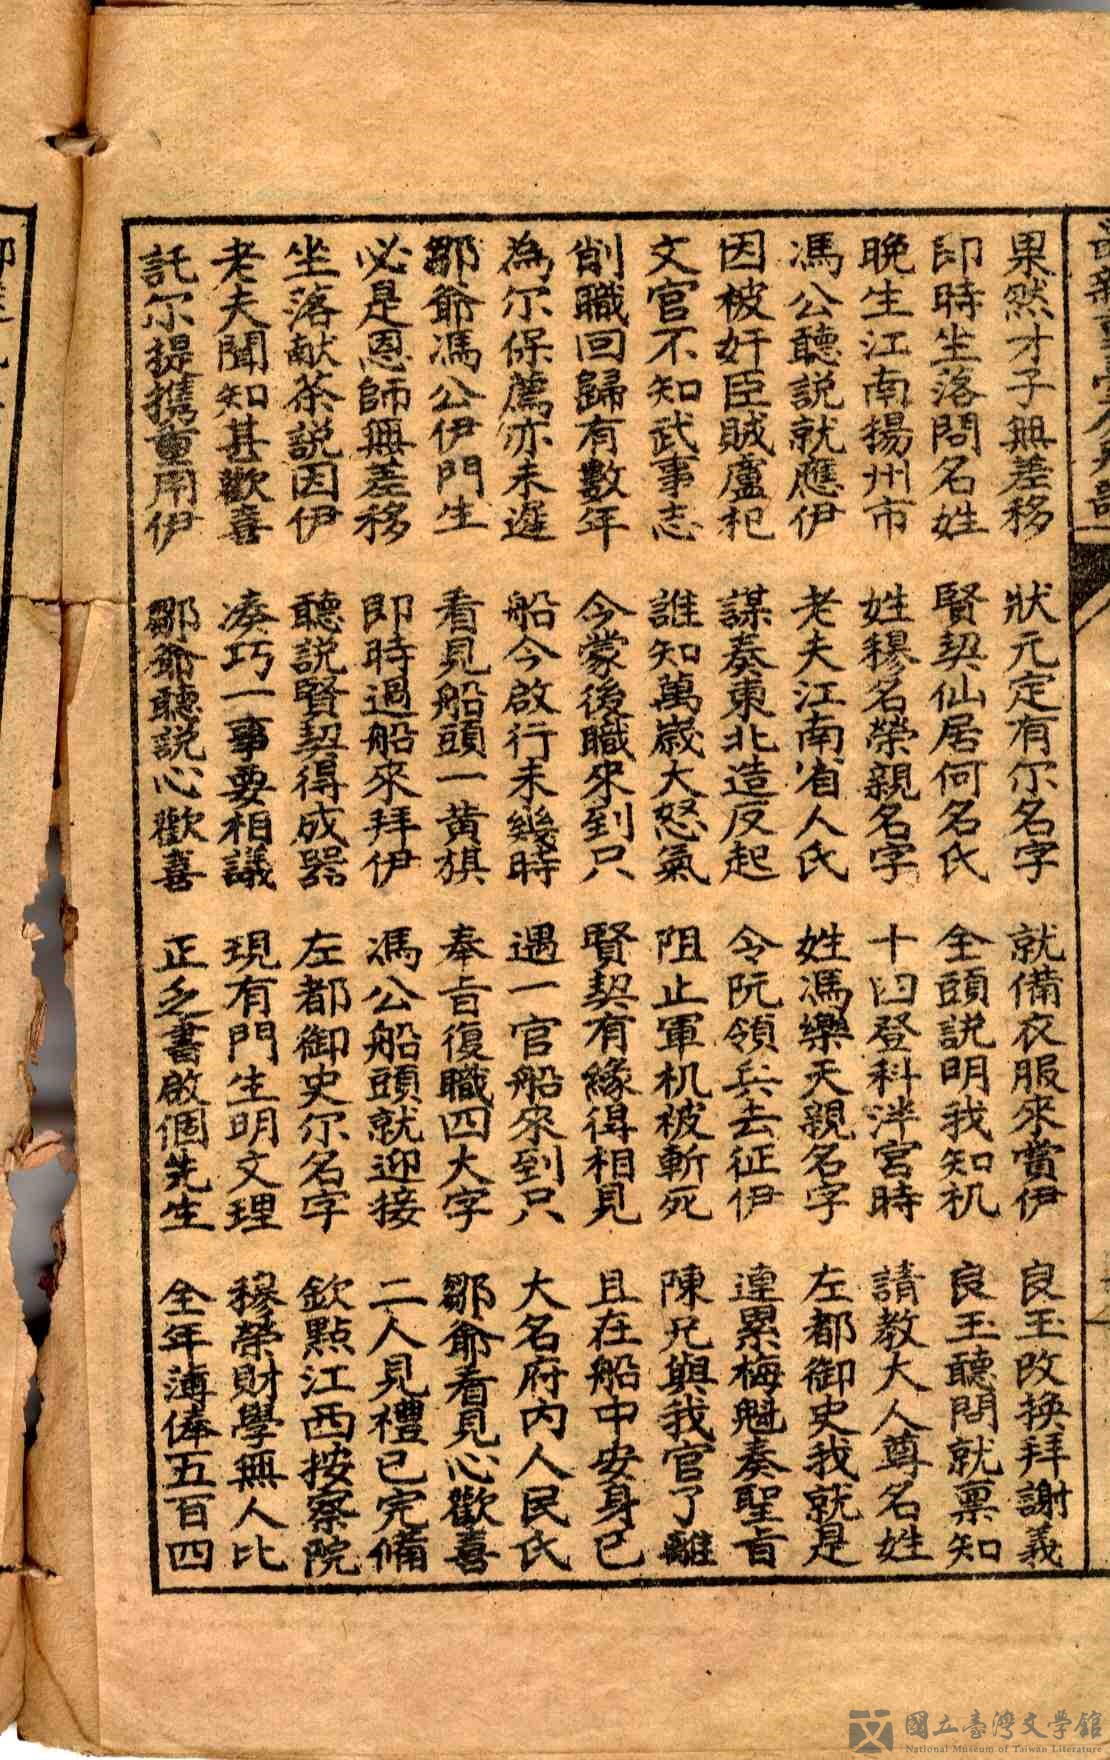 果然才子無差移 狀元定有尔名字 就備衣服來賞伊 良玉改換拜謝義
即時坐落問名姓 賢契仙居何名氏 全頭說明我知机 良玉聽問就稟知
晚生江南揚州市 姓穆名榮親名字 十四登科泮宮時 請教大人尊名姓
馮公聽説就應伊 老夫江南省人氏 姓馮樂天親名字 左都御史我就是
因被奸臣賊盧杞 謀奏東北造反起 令阮領兵去征伊 連累梅魁奏聖旨
文官不知武事志 誰知萬歲大怒氣 阻止軍机被斬死 陳兄與我官了離
削職回歸有數年 今蒙後職來到只 賢契有緣得相見 且在船中安身已
為尔保薦亦未遲 船今啟行未幾時 遇一官船來到只 大名府內人民氏
鄒爺馮公伊門生 看見船頭一黃旗 奉旨復職四大字 鄒爺看見心歡喜
必是恩師無差移 即時過船來拜伊 馮公船頭就迎接 二人見禮已完備
坐落献茶説因伊 聽説賢契得成器 左都御史尔名字 欽點江西按察院
老夫聞知甚歡喜 湊巧一事要相議 現有門生明文理 穆榮財學無人比
託尔提携重用伊 鄒爺聽説心歡喜 正乏書啟個先生 全年薄俸五百四
國立臺灣文學館
National Museum of Taiwan Literature